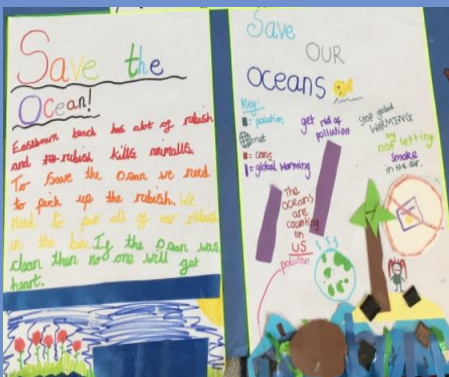 Save the
Ocean!
Eastbourn beach has alot of rubish
and rubish kills animalls.
To Save the Ocean we need
to pick up the rubish. We
need to put all of our rubish
in the bin. If the Ocean was
clean then no one will get
heart.
Save
OUR
OCEANS
Key:
= polution
= net
= cans
= global Warming
get rid of
pollution
Stop global
WARMING
by
not letting
smoke
in the air.
The
oceans
are
counting
on
US
polution